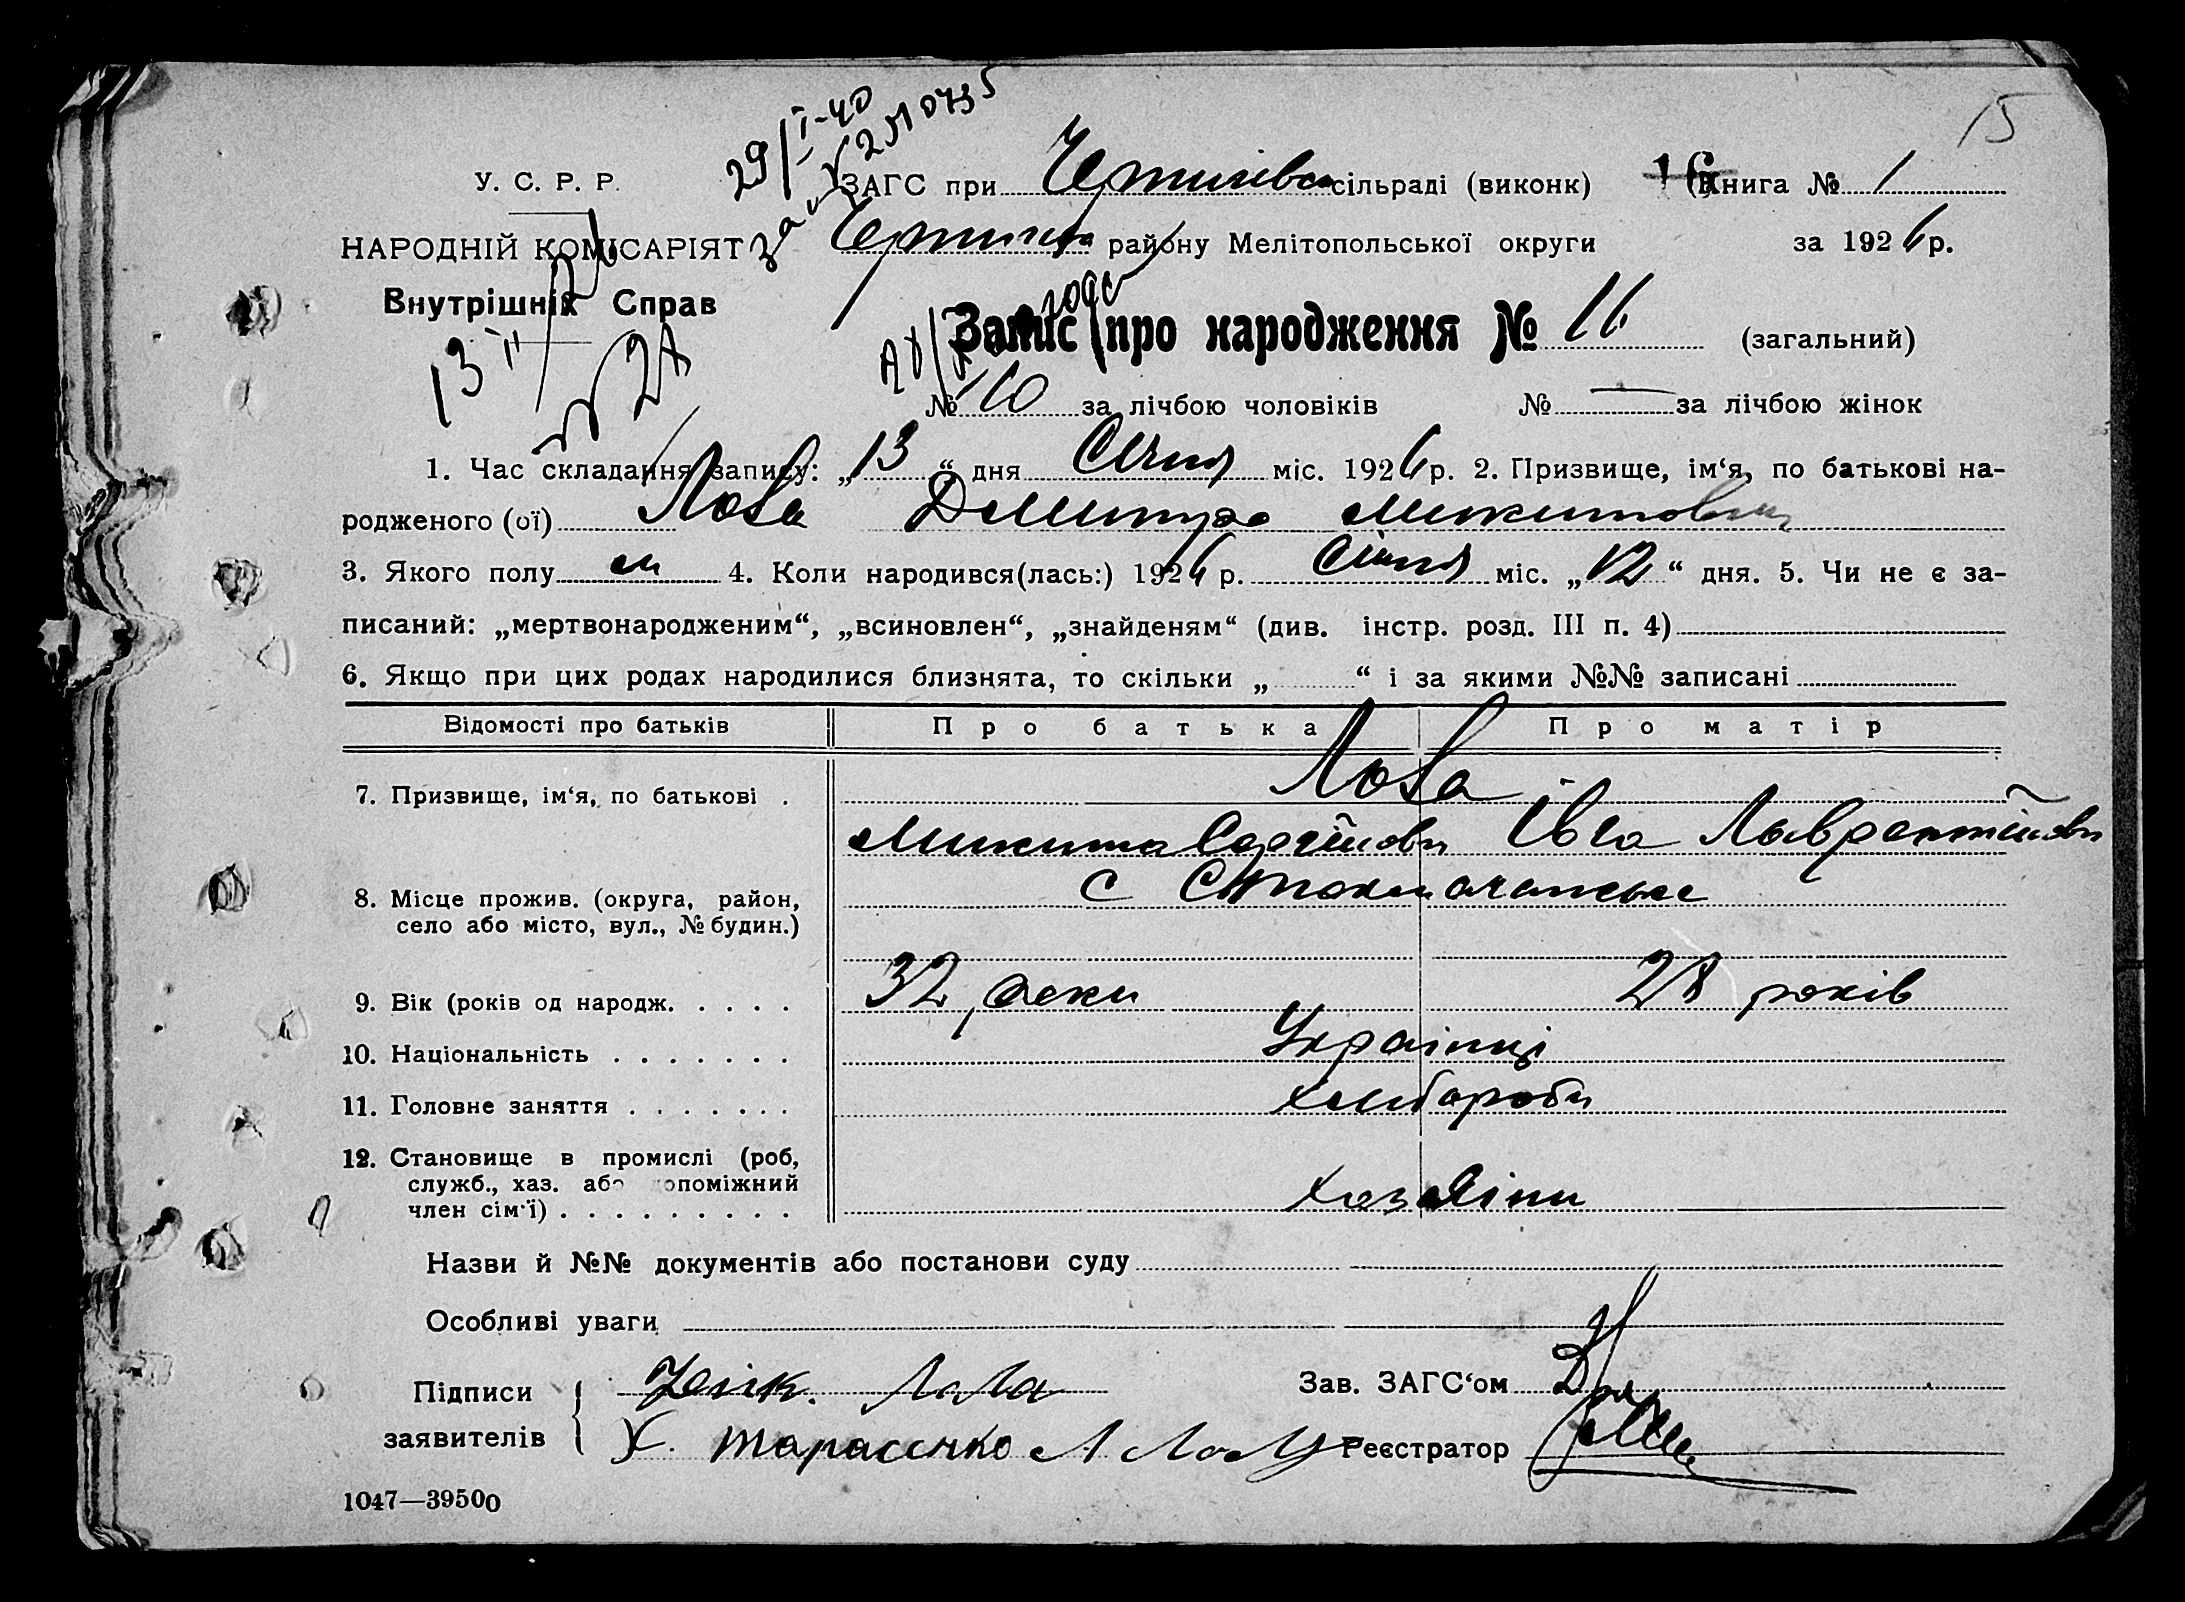 15
29/I-40
У. С. Р. Р.
ЗАГС при сільраді (виконк) 16 Книга № 1
НАРОДНІЙ КОМІСАРІЯТ району Мелітопольської округи за 1926 р.
Внутрішніх Справ
Запис про народження № 16 (загальний)
13
№ 10 за лічбою чоловіків № — за лічбою жінок
1. Час складання запису: „13“ дня Січня міс. 1926 р. 2. Призвище, ім‘я, по батькові на-
родженого (ої) Лоза Дмитро Микитович
3. Якого полу м 4. Коли народився(лась:) 1926 р. Січня міс. „12“ дня. 5. Чи не є за-
писаний: „мертвонародженим“, „всиновлен“, „знайденям“ (див. інстр. розд. III п. 4)
6. Якщо при цих родах народилися близнята, то скільки „ “ і за якими №№ записані
Відомості про батьків Про батька Про матір
7. Призвище, ім‘я, по батькові . Лоза
Микита Сергійови Івга Лаврентійови
8. Місце прожив. (округа, район, с
село або місто, вул., № будин.)
9. Вік (років од народж. . . . . 32 роки 28 років
10. Національність . . . . . . . Українці
11. Головне заняття . . . . . . . хлібороби
12. Становище в промислі (роб,
служб., хаз. або допоміжний
член сім‘ї) . . . . . . . . . хазяіни
Назви й №№ документів або постанови суду
Особливі уваги
Підписи Лоза Зав. ЗАГС‘ом
заявителів Х. Тарасенко Реєстратор
1047—39500